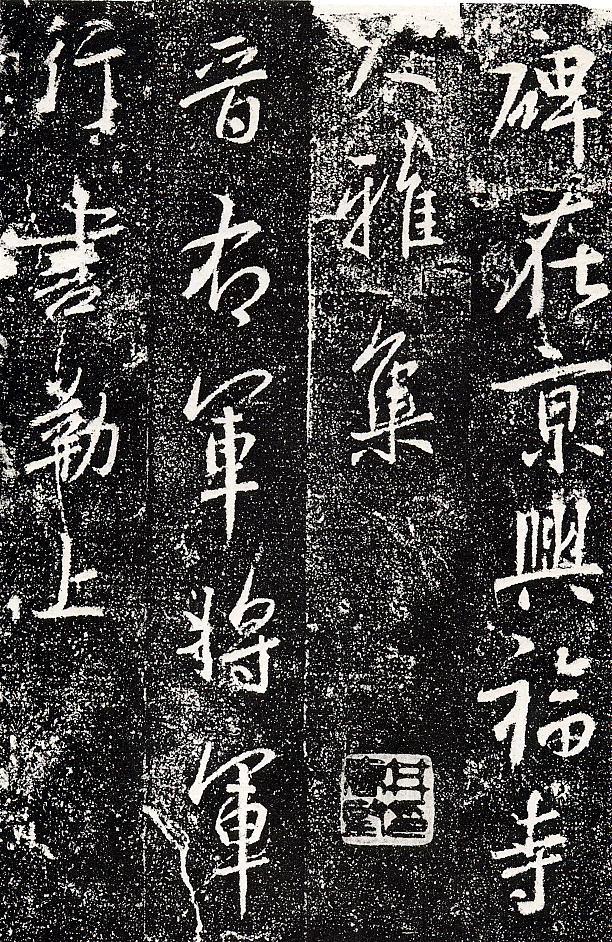 碑在京興福寺
大雅集
晉右軍將軍
行書勒上